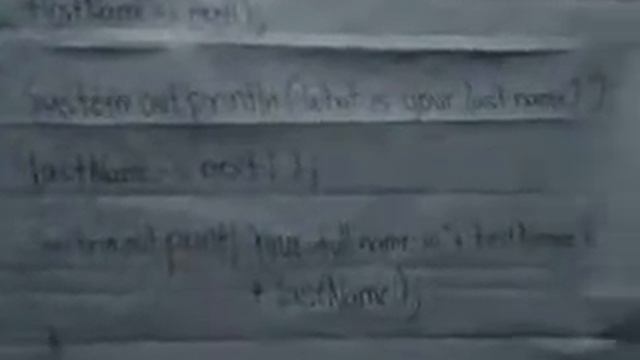 firstName = next();
System.out.println("What is your last name?"
lastName = next();
System.out.print( your full name is " + firstName
+ lastName);